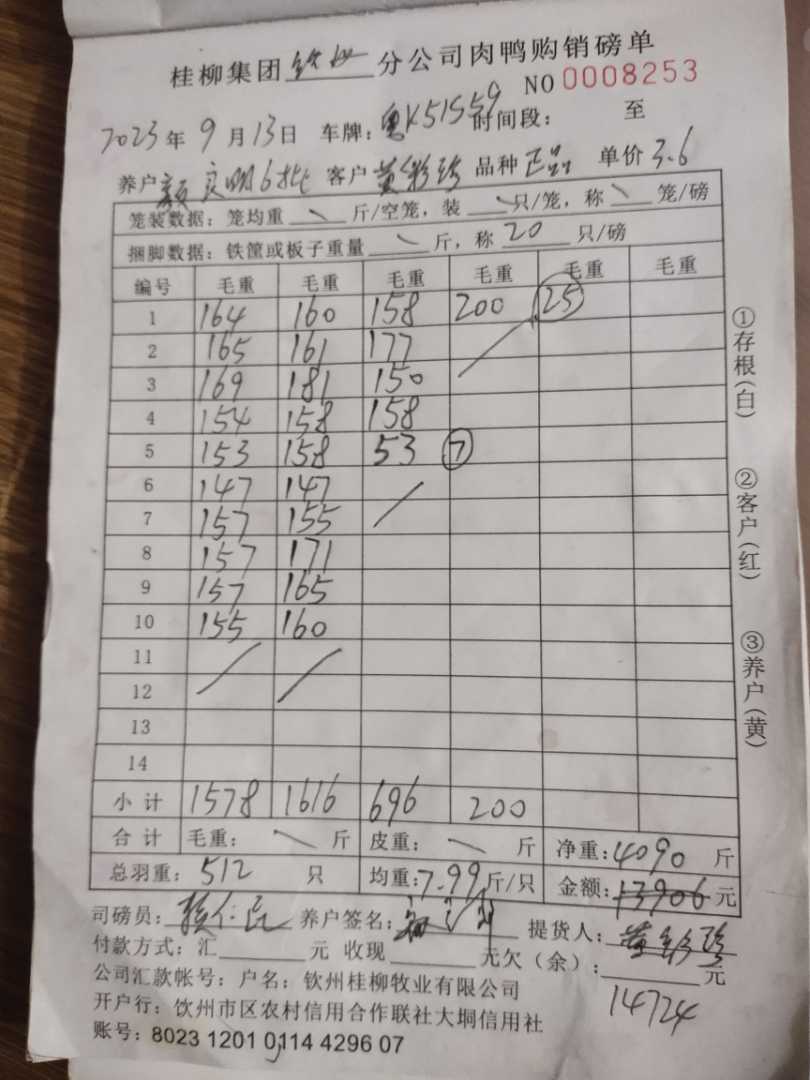 桂柳集团钦州分公司肉鸭购销磅单
NO 0008253
2023年9月13日 车牌：粤K51559 时间段： 至
养户颜良明6批 客户黄彩珍 品种正品 单价3.6
笼装数据：笼均重 \ 斤/空笼，装 \ 只/笼，称 \ 笼/磅
捆脚数据：铁筐或板子重量 \ 斤，称 20 只/磅
编号 毛重 毛重 毛重 毛重 毛重 毛重
1 164 160 158 200 25
2 165 161 177
3 169 181 150
4 154 158 158
5 153 158 53 ⑦
6 147 147
7 157 155
8 157 171
9 157 165
10 155 160
11
12
13
14
小计 1578 1616 696 200
合计 毛重： \ 斤 皮重： \ 斤 净重：4090 斤
总羽重：512 只 均重：7.99斤/只 金额：13906元
司磅员： 养户签名： 提货人：黄彩珍
付款方式：汇 元 收现 元欠（余）： 元
14724
公司汇款帐号：户名：钦州桂柳牧业有限公司
开户行：饮州市区农村信用合作联社大垌信用社
账号：8023 1201 0114 4296 07
①存根（白）
②客户（红）
③养户（黄）